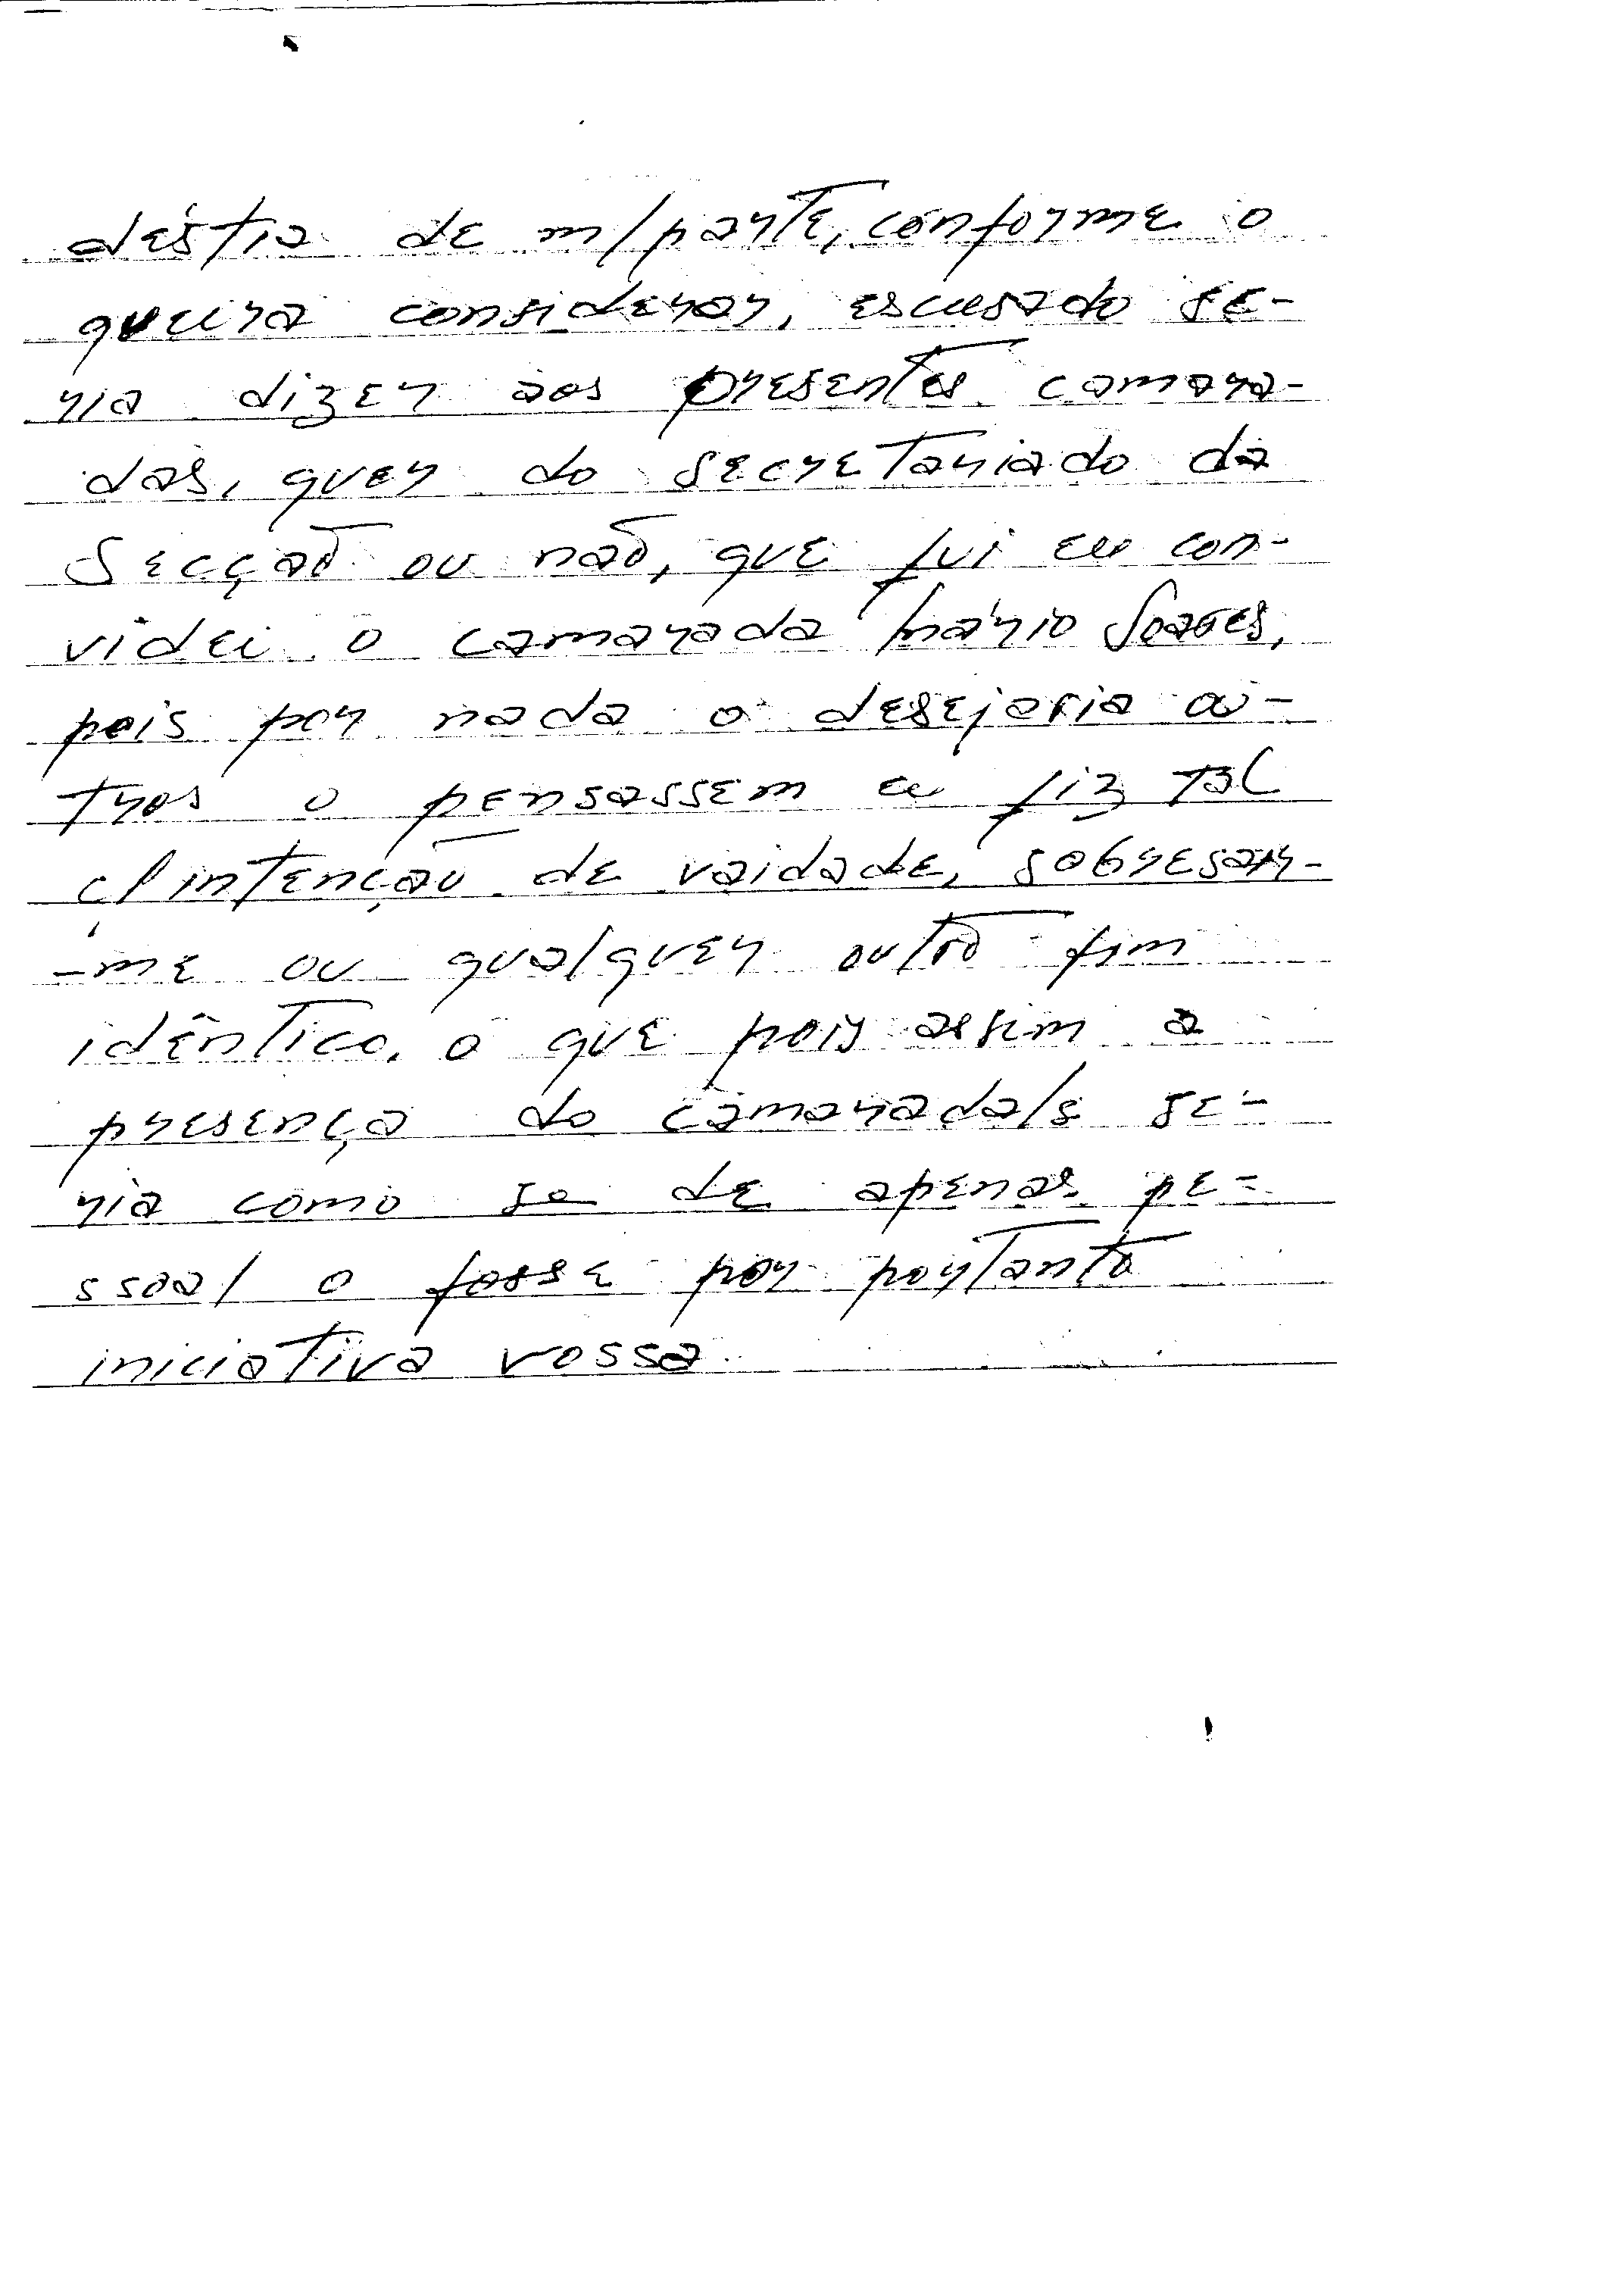 déstia de m/parte, conforme o
queira considerar, escusado se-
ria dizer aos presentes camara-
das, quer do secretariado da
Secção ou não, que fui eu con-
videi o camarada Mário Soares,
pois por nada o desejaria ou-
tros o pensassem eu fiz tal
c/ intenção de vaidade, sobresair-
-me ou qualquer outro fim
idêntico, o que pois assim a
presença do camarada/s se-
ria como se de apenas pe-
ssoal o fosse por portanto
iniciativa vossa.